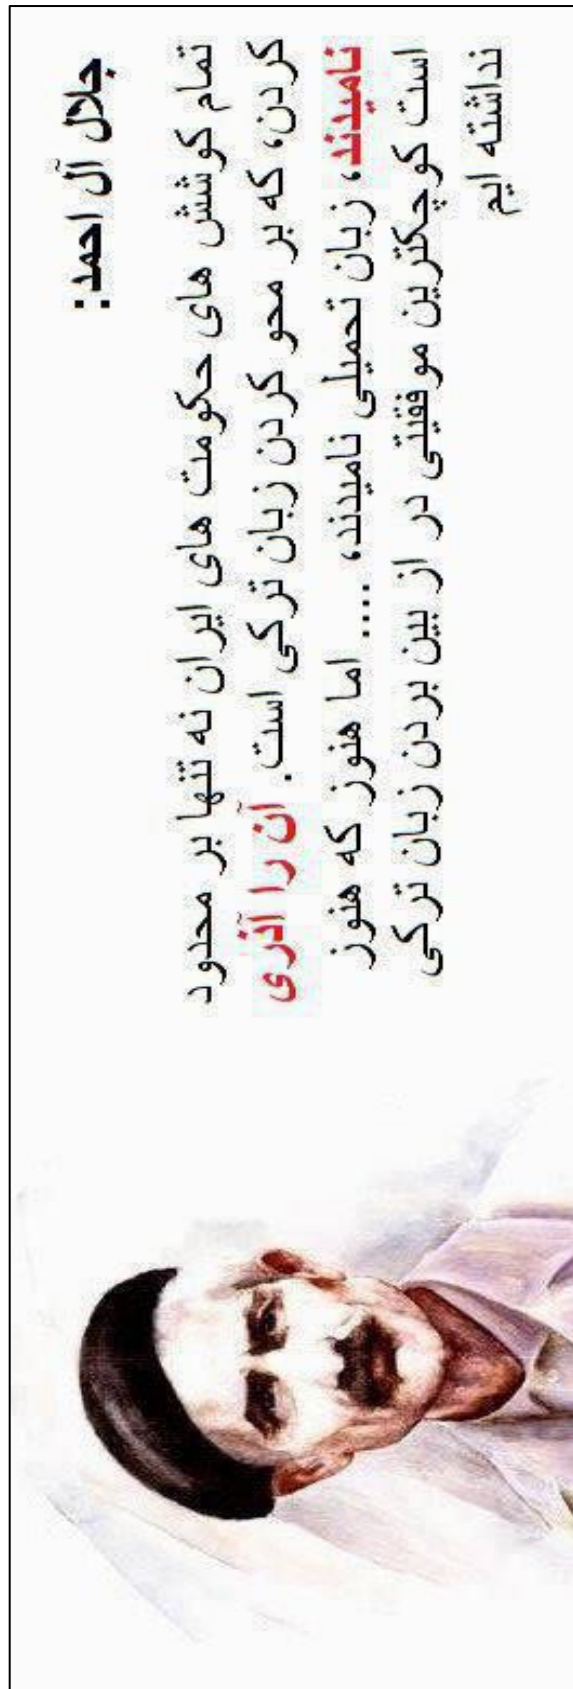 جلال آل احمد:
تمام کوشش های حکومت های ایران نه تنها بر محدود
کردن، که بر محو کردن زبان ترکی است. آن را آذری
نامیدند، زبان تحمیلی نامیدند، .... اما هنوز که هنوز
است کوچکترین موفقیتی در از بین بردن زبان ترکی
نداشته ایم